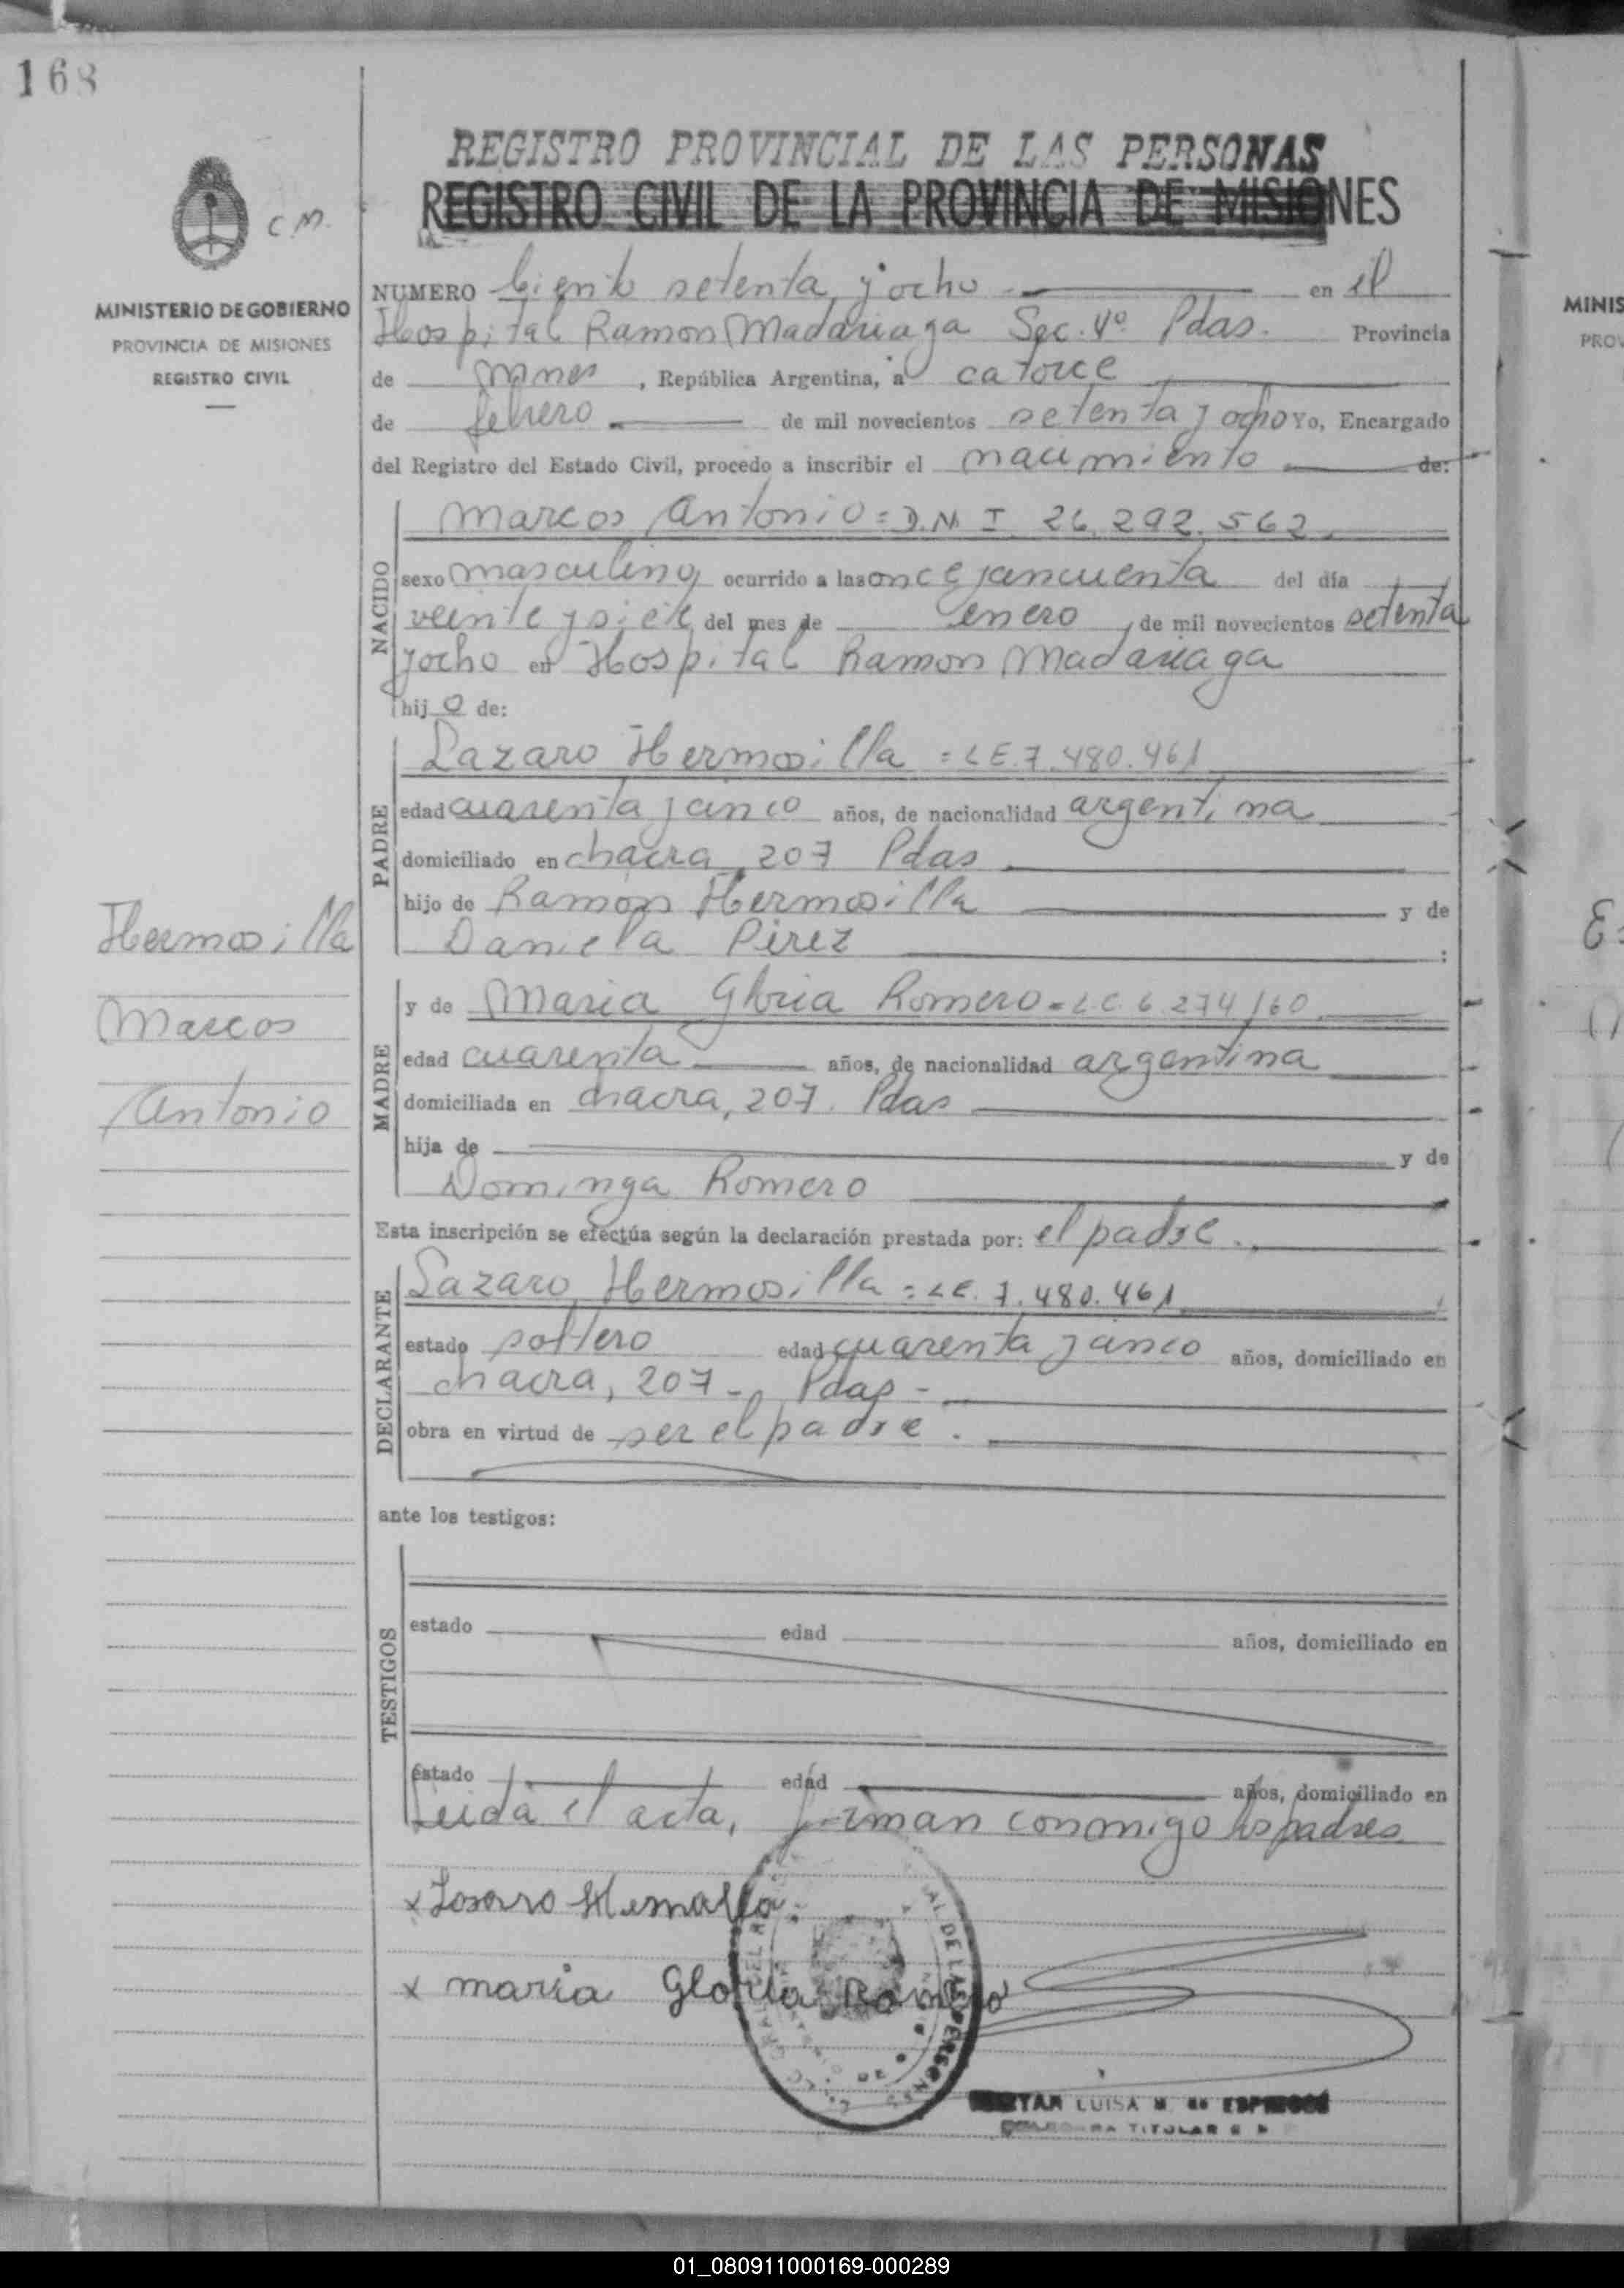 168
REGISTRO PROVINCIAL DE LAS PERSONAS
REGISTRO CIVIL DE LA PROVINCIA DE MISIONES
C.M.
MINISTERIO DE GOBIERNO
PROVINCIA DE MISIONES
REGISTRO CIVIL
NUMERO Ciento setenta y ocho en el
Hospital Ramon Madariaga Sec. 4º Pdas. Provincia
de Mnes, República Argentina, a catorce
de febrero de mil novecientos setenta y ocho Yo, Encargado
del Registro del Estado Civil, procedo a inscribir el nacimiento de:
NACIDO
Marcos Antonio = D.N.I 26.292.562.
sexo masculino, ocurrido a las once y cincuenta del día
veinte y siete del mes de enero, de mil novecientos setenta
y ocho en Hospital Ramon Madariaga
hijo de:
PADRE
Lazaro Hermosilla = L.E. 7.480.461
edad cuarenta y cinco años, de nacionalidad argentina
domiciliado en chacra, 207 Pdas
hijo de Ramon Hermosilla y de
Daniela Pérez :
Hermosilla
Marcos
Antonio
MADRE
y de Maria Gloria Romero = L.C. 6.274160.
edad cuarenta años, de nacionalidad argentina
domiciliada en chacra, 207. Pdas
hija de y de
Dominga Romero
Esta inscripción se efectúa según la declaración prestada por: el padre.
DECLARANTE
Lazaro Hermosilla = L.E. 7.480.461
estado soltero edad cuarenta y cinco años, domiciliado en
chacra, 207 - Pdas -
obra en virtud de ser el padre.
ante los testigos:
TESTIGOS
estado edad años, domiciliado en
estado edad años, domiciliado en
Leida el acta, firman conmigo los padres.
x Losaro
x maria Gloria Romero
DE LAS PERSONAS
LUISA
TITULAR
MINIS
PROV
01_080911000169-000289